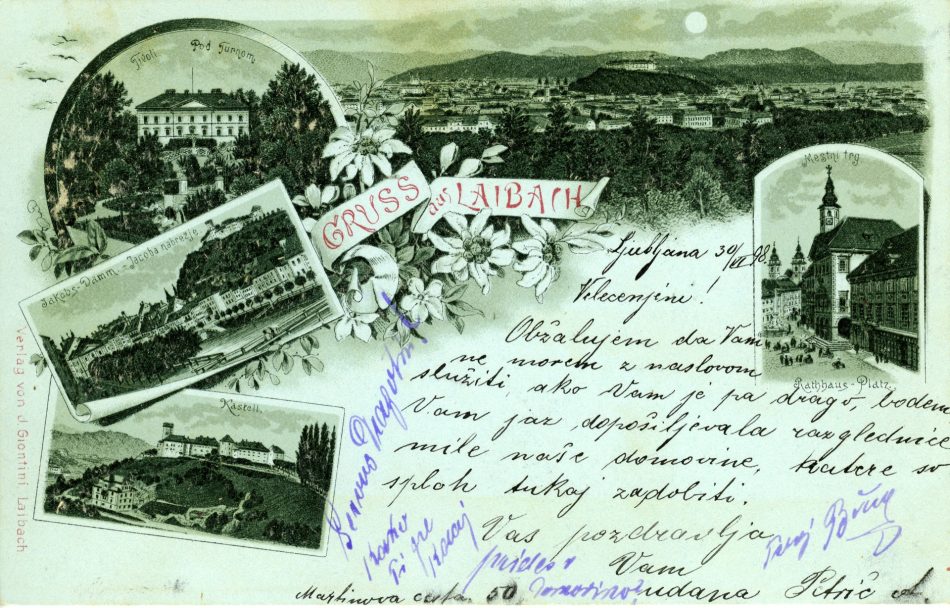 Tivoli Pod Turnom
GRUSS aus LAIBACH
Mestni trg
Rathhaus-Platz.
Jakobs-Damm. - Jacoba nabrežje
Kastell.
Verlag von J. Giontini, Laibach
Ljubljana 30/VI 98.
Velecenjeni!
Obžalujem da Vam
ne morem z naslovom
služiti, ako Vam je pa drago, bodem
Vam jaz dopošiljevala razglednice
mile naše domovine, katere so
sploh tukaj zadobiti.
Vas pozdravlja
Vam
udana Petrič
Martinova cesta 50
Servus
Kako
Ti
kaj
prideš v